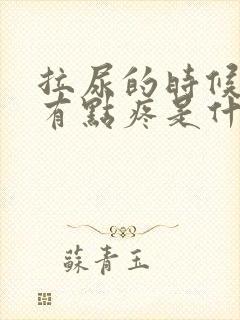 拉尿的時候
有點疼是什
蘇青玉